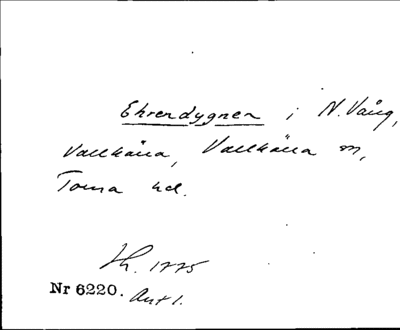 Ehrendygnen i N. Vång,
Vallkärra, Vallkärra sn,
Torna hd.
Lh. 1775
Nr 6220. Akt 1.